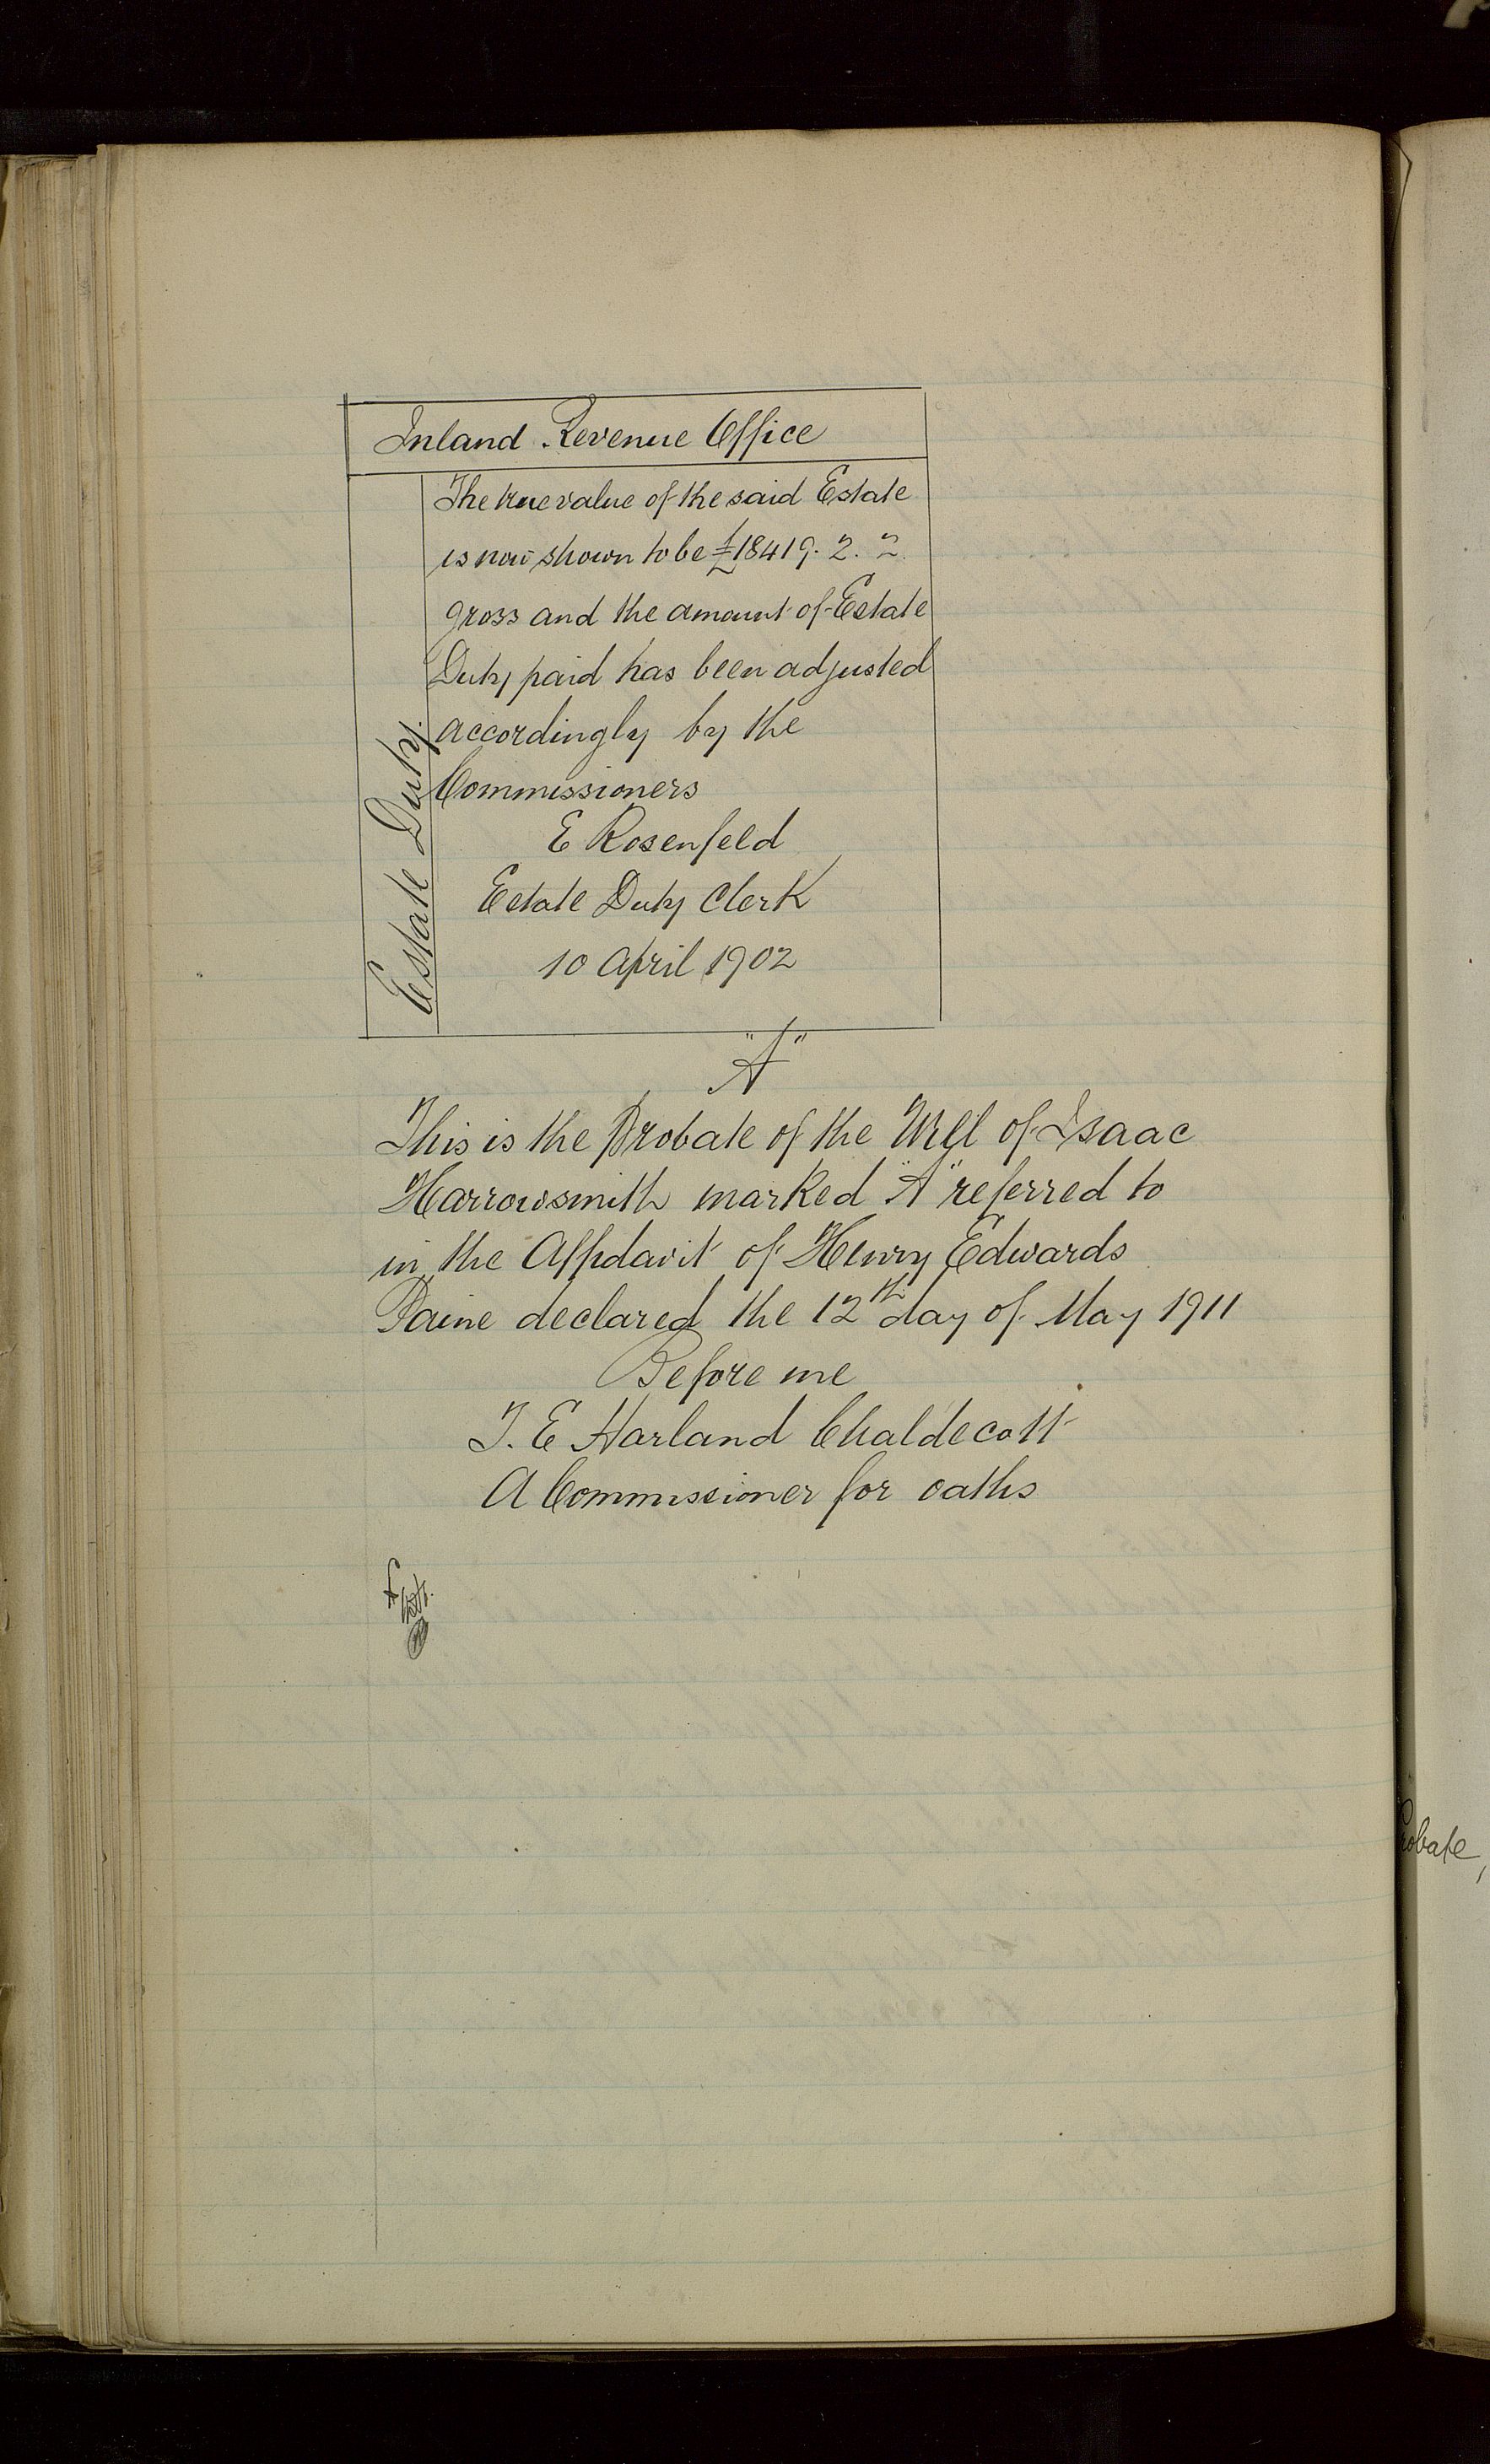 Inland Revenue Office
Estate Duty.
The true value of the said Estate
is now shown to be £18419. 2. "
gross and the amount of Estate
Duty paid has been adjusted
accordingly by the
Commissioners
E Rosenfeld
Estate Duty Clerk
10 April 1902
"A"
This is the Probate of the Will of Isaac
Harrowsmith marked "A" referred to
in the Affidavit of Henry Edwards
Paine declared the 12th day of May 1911
Before me
T. E Harland Chaldecott
A Commissioner for oaths
robate,